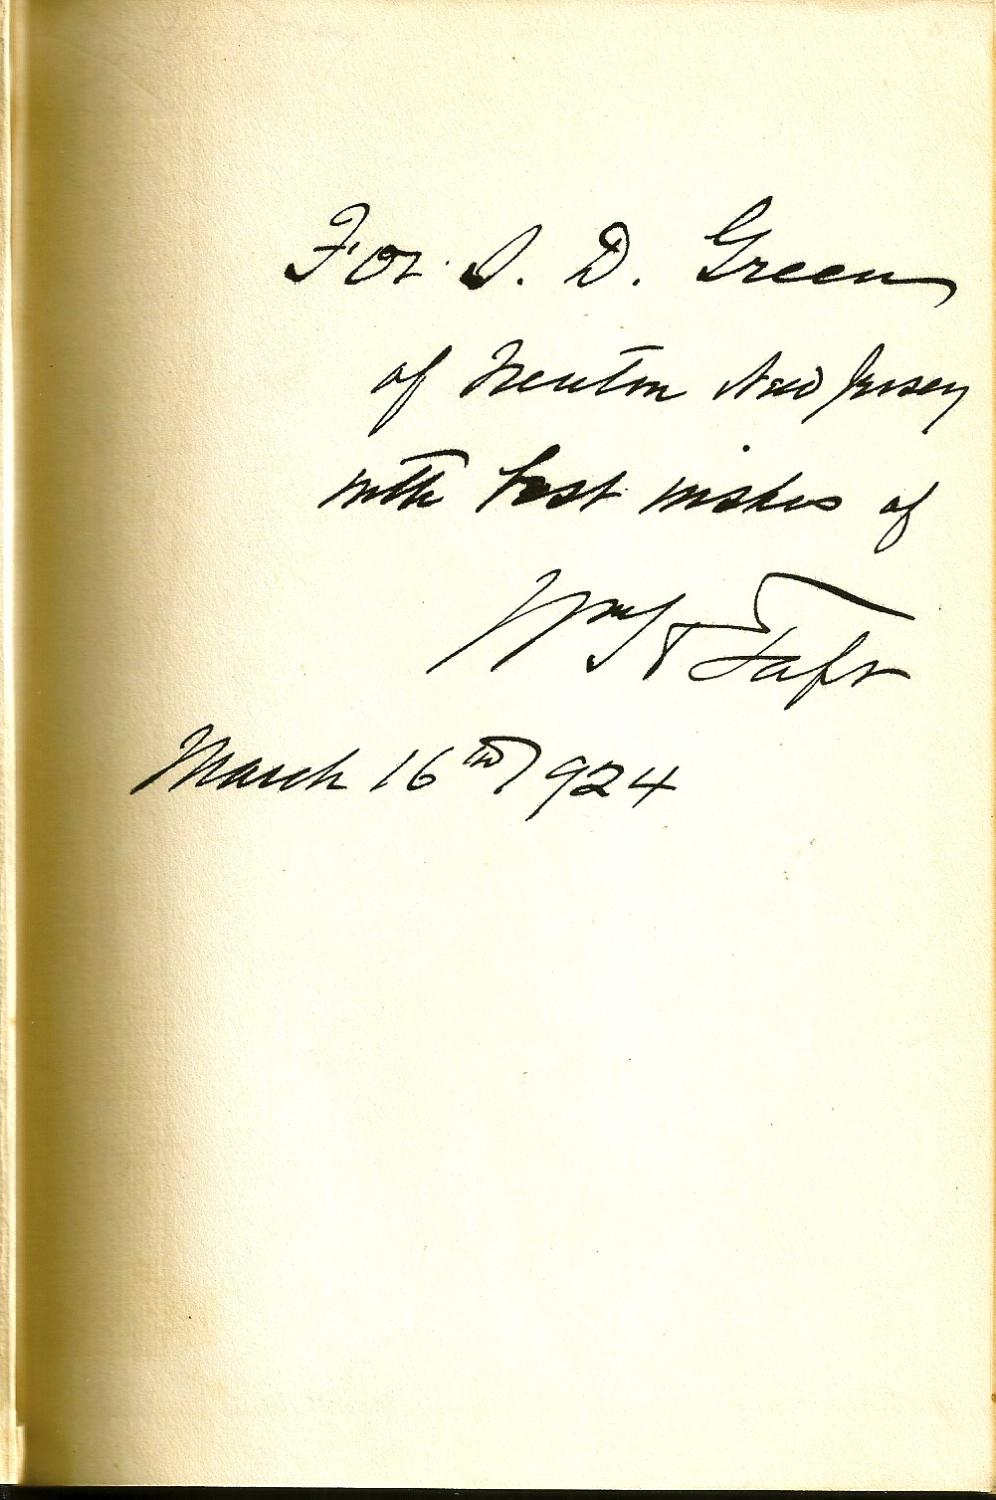 For I. D. Green
of Newton New Jersey
with best wishes of
Wm H Taft
March 16th 1924